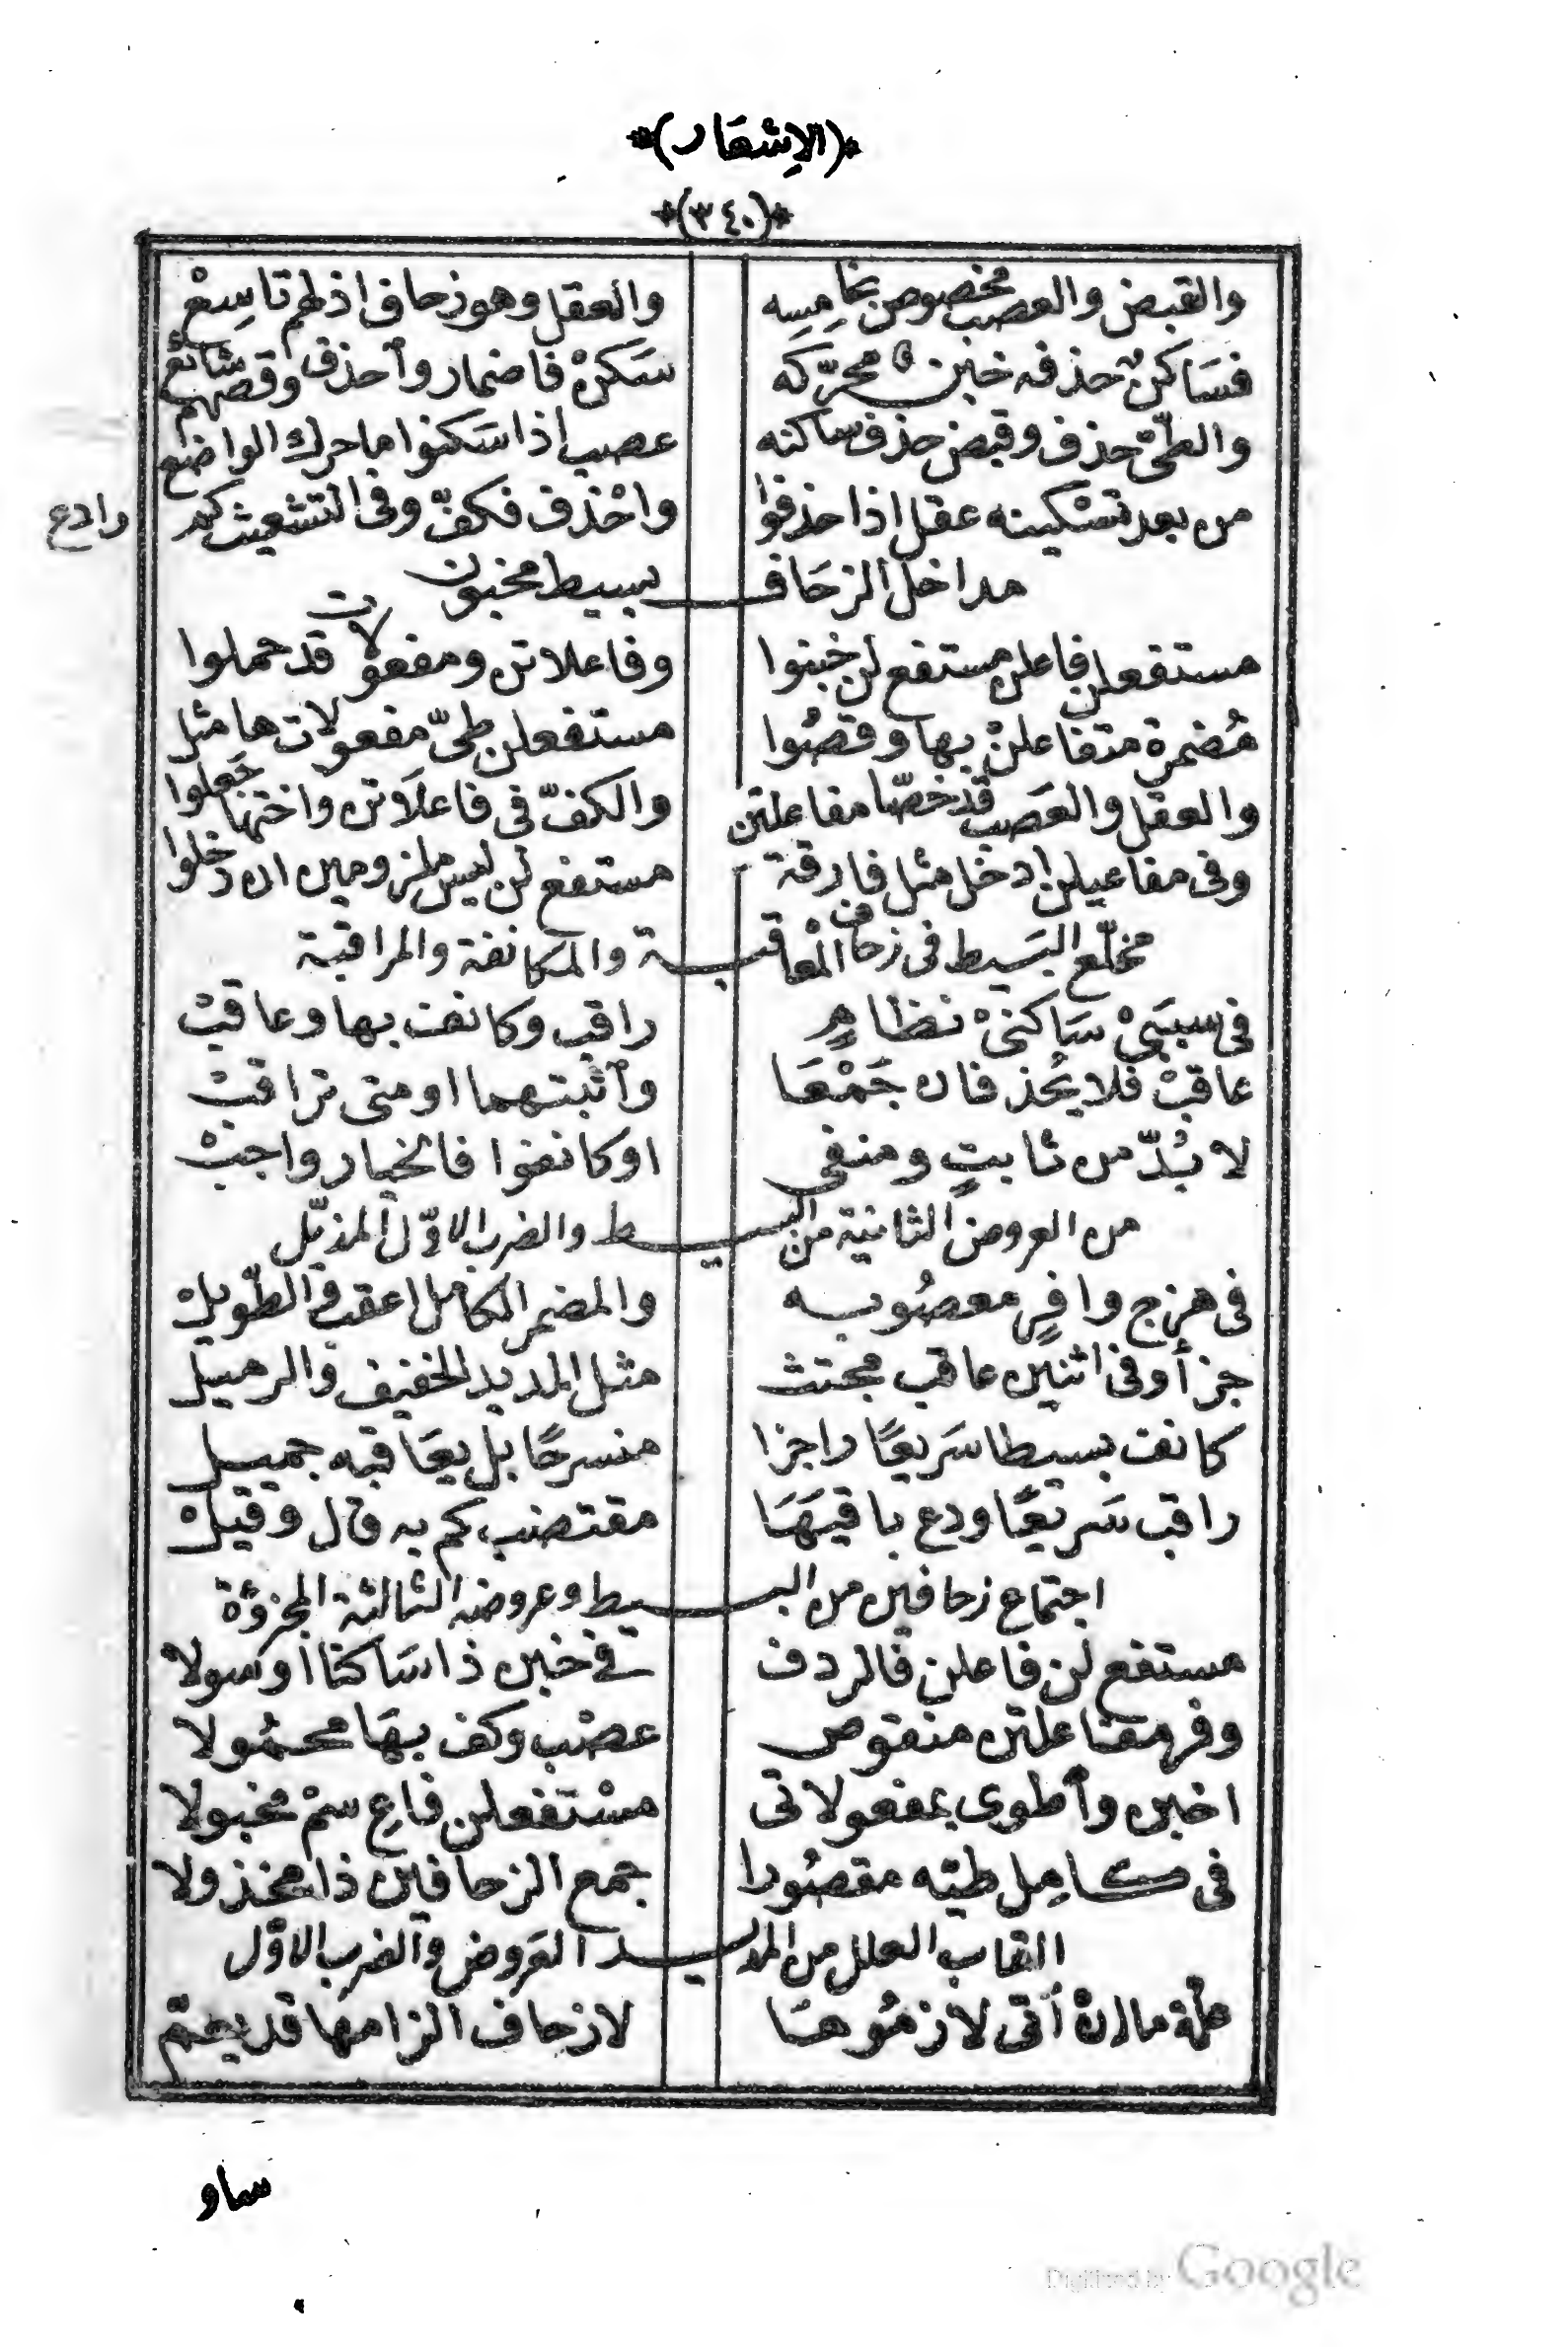 *(الاشعار)*
*(٣٤٠)*
والقبض والعصب مخصوص بخامِسِه والعقل وهو زحاف اذ لهم تاسِعْ
فسَاكنٌ حذفه خبن محرّكه سَكنْ فاضمار وٱحذف وقصهم شائع
والطىّ حذف وقبض حذف ساكنه عصب اذا سَكنوا ما حرك الواضع
من بعد تسْكينه عقل اذا حذفوا واحْذف فكفّ وفى التشعيث كم رادع
مداخل الزحَاف بسيط مخبون
مستفعلن فاعلن مستفع لن خبنوا وفاعلاتن ومفعولات قد حملوا
مُضمرة متفاعلنْ بها وقصُوا مستفعلن طىّ مفعولات ها مثل
والعقل والعَصب قد خصّا مفاعلتن والكفّ فى فاعلَاتن واختها جَعلوا
وفى مفاعيلن ادخل مثل فارقة مستفع لن ليس ملزومين ان دخلوا
مخلّع البَسيط فى زحاف الْمعاقبة والمكانفة والمراقبة
فى سببَىْ سَاكنىْ نظاهرٍ راقب وكانفت بها وعاقبْ
عاقبْ فلا يُحذفان جَمْعَا وٱثبتهما او متى تراقبْ
لا بُدّ من ثابتٍ ومنفى او كانفوا فالخيار واجبْ
من العروض الثانية من البسيط والضرب الاوّل المذيّل
فى هزج وافرٍ معصُوبه والمضمر الكامل اعقب والطّويلْ
جزأ وفى اثنين عاقب مجتث مثل المديد الخفيف والرميل
كانفت بسيطا سَريعًا راجزا منسرحًا بل يعَاقبه جميل
راقب سَريعًا ودع باقيهَا مقتضب كم به قال وقيلْ
اجتماع زحافين من البسيط وعروضه الثالثة المجزؤة
مستفع لن فاعلن فالردف فى خبن ذا سَاكنا اوسولا
وفر مفاعلتن منقوص عصْب وكف بهَا محمُولا
اخبن وٱطوى بمفعولاتى مسْتفعلن فاعِ سمْ مخبولا
فى كامِل طيّه مقصُورا جمع الزحافين ذا مخذولا
القاب العلل من المديد العَروض والضرب الاوّل
علّة ما ان أتى لازمُوهَا لا زحاف الزامها قد يعتمّ
ساو
Digitized by Google